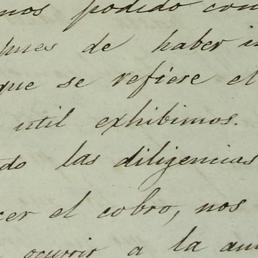 mos podido con
pues de haber i
que se refiere el
util exhibimos.
do las diligencias
cer el cobro, nos
ocurrir a la au